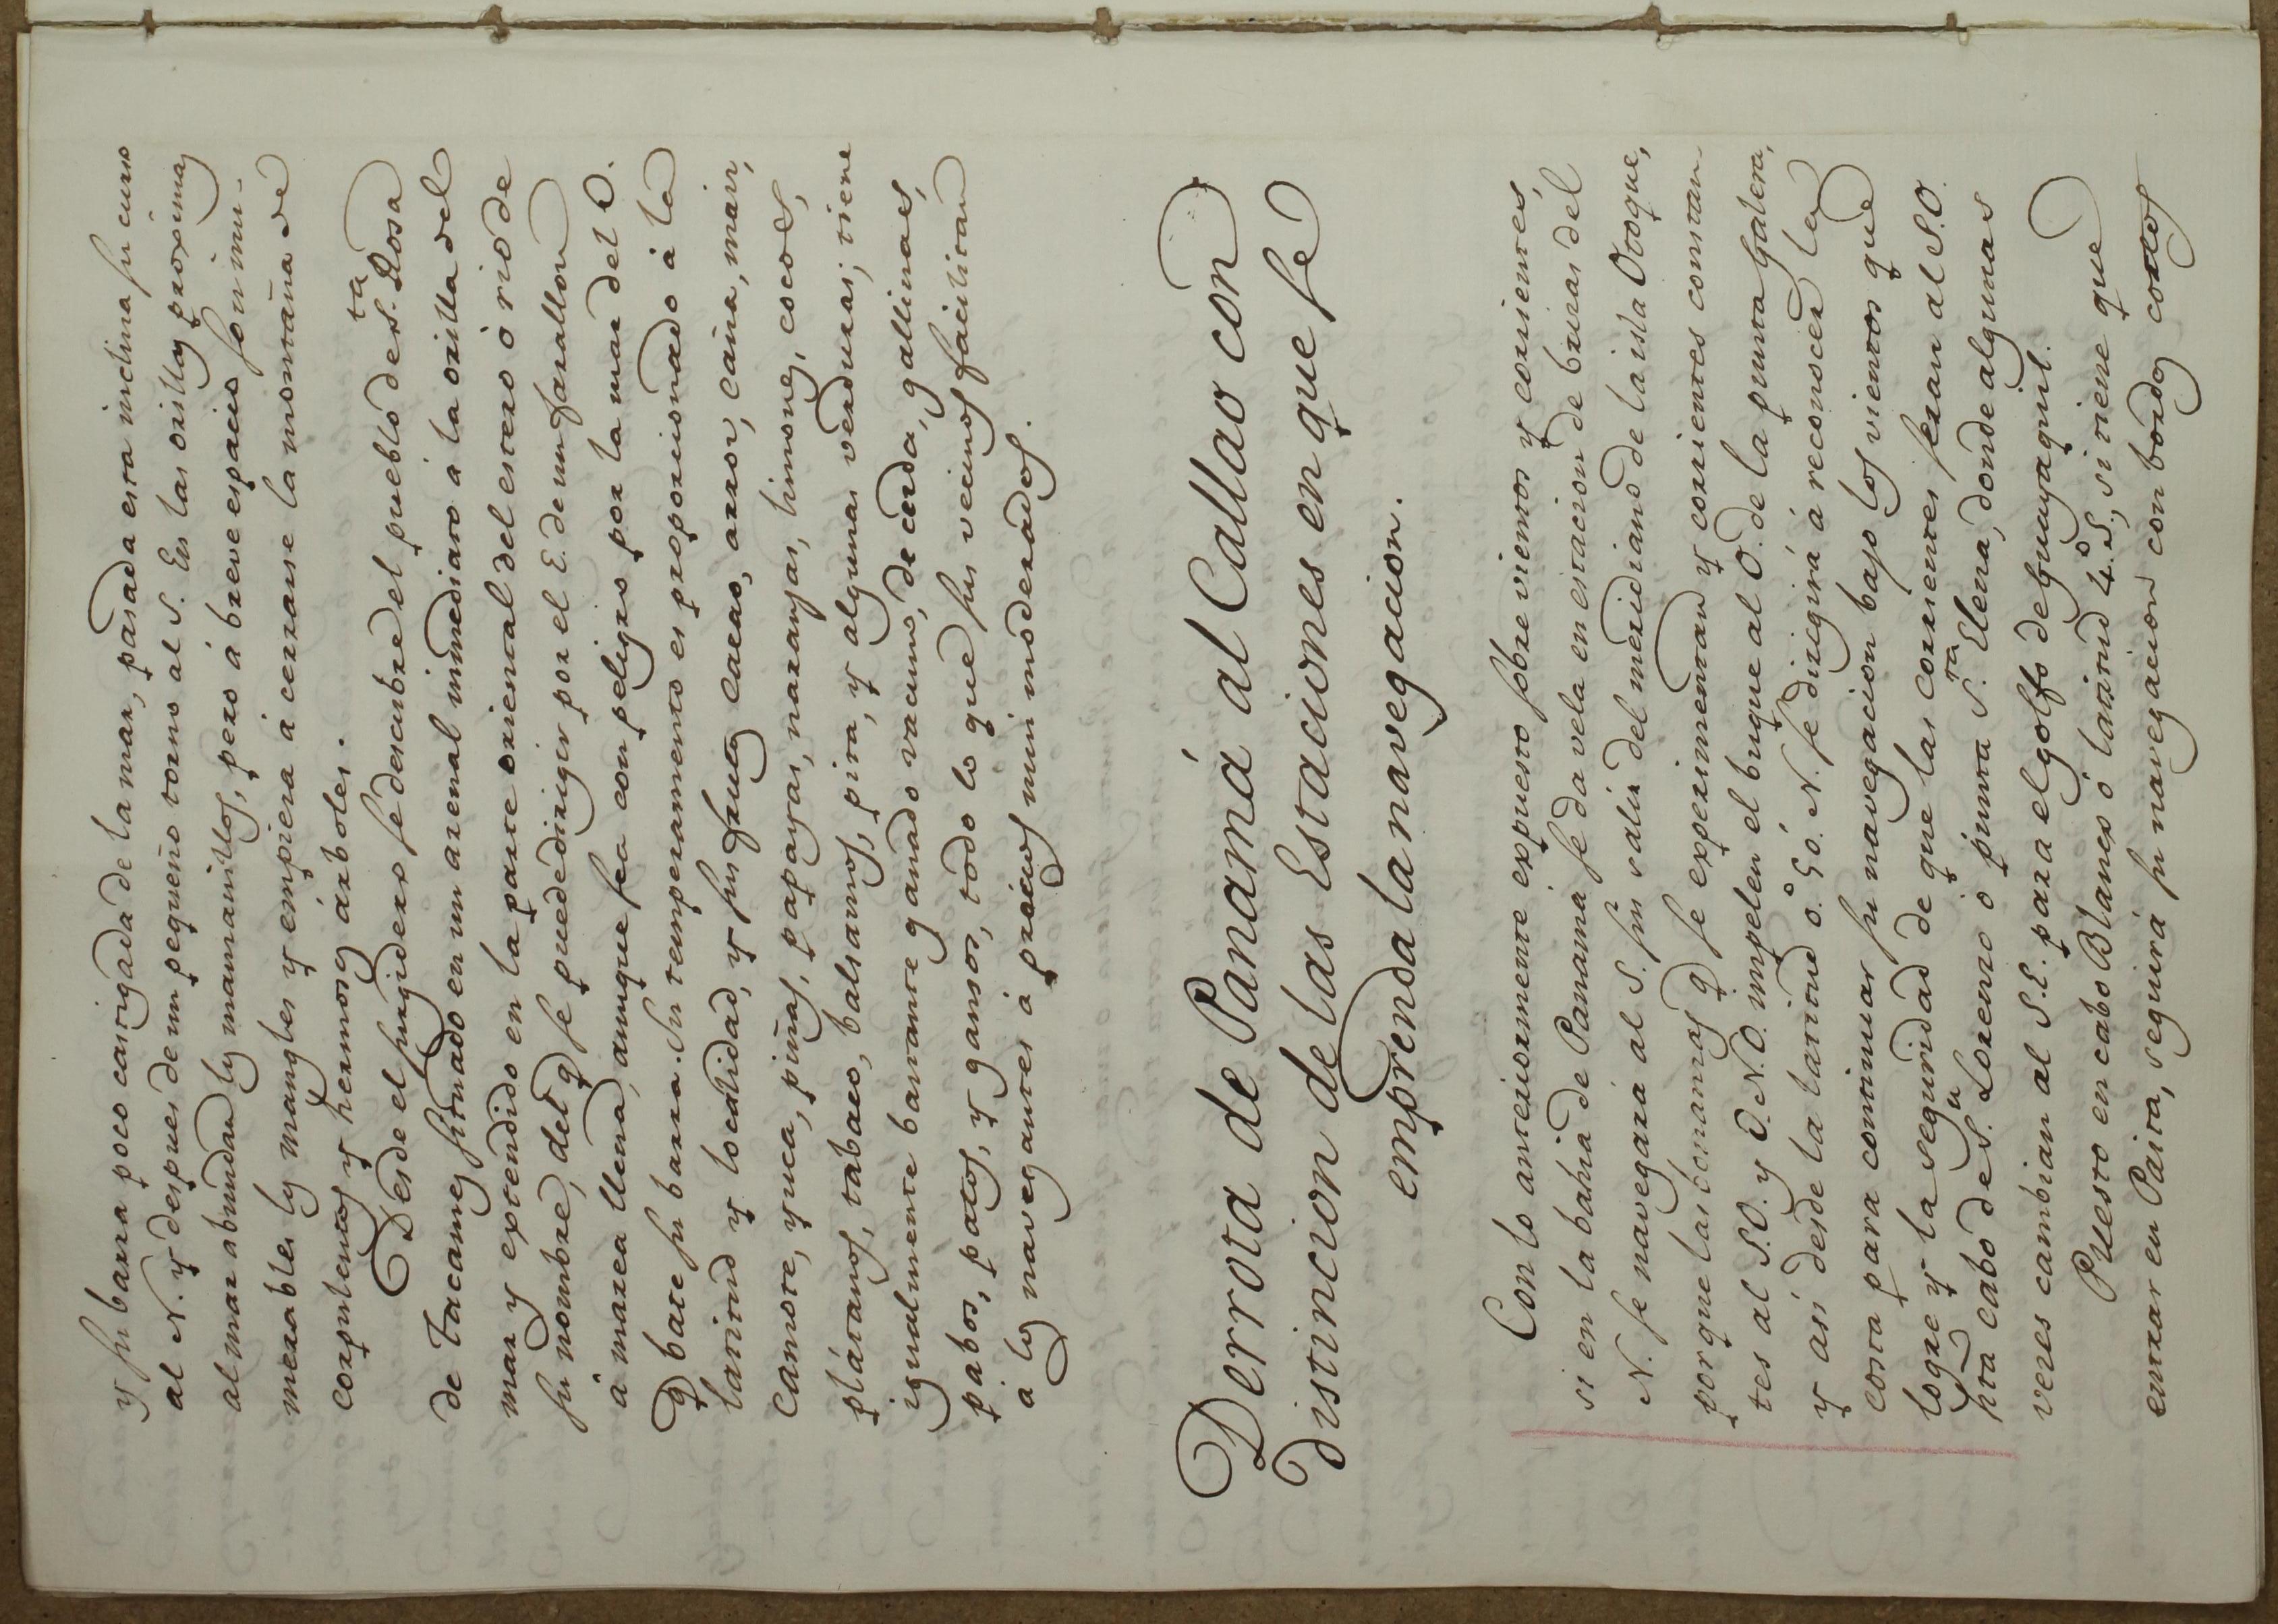 y su barra poco castigada de la mar, pasada esta inclina su curso
al N. y despues de un pequeño torno al S. En las orillas proximas
al mar abundan los manzanillos, pero á breve espacio son innu-
merables los mangles y empieza á cerrarse la montaña de
corpulentos y hermosos árboles.
Desde el surgidero se descubre el pueblo de S.ta Rosa
de Tacames situado en un arenal inmediato á la orilla del
mar y extendido en la parte oriental del estero ó rio de
su nombre, del q.e se puede dirigir por el E. de un farallon
á marea llena, aunque sea con peligro por la mar del O.
q.e bate su barra. Su temperamento es proporcionado á la
latitud y localidad, y sus frutos cacao, arroz, caña, maiz,
camote, yuca, piñas, papayas, naranjas, limones, cocos,
plátanos, tabaco, balsamos, pita, y algunas verduras; tiene
igualmente bastante ganado vacuno, de cerda, gallinas,
pabos, patos, y gansos, todo lo que sus vecinos facilitan
a los navegantes á precios mui moderados.
Derrota de Panamá al Callao con
distincion de las Estaciones en que se
emprenda la navegacion.
Con lo anteriormente expuesto sobre vientos y corrientes,
si en la bahia de Panamá se da vela en estacion de brisas del
N. se navegará al S. sin salir del meridiano de la isla Otoque,
porque las bonanzas q.e se experimentan y corrientes constan-
tes al S.O. y O.N.O. impelen el buque al O. de la punta Galera,
y asi desde la latitud 0.° 50. N. se dirigirá á reconocer la
costa para continuar su navegacion bajo los vientos que
logre y la seguridad de que las corrientes seran al S.O.
hta cabo de S.n Lorenzo ó punta S.ta Elena, donde algunas
veces cambian al S.E. para el golfo de Guayaquil.
Puesto en cabo Blanco ó latitud 4.° S., si tiene que
entrar en Paita, seguirá su navegacion con bordos cortos